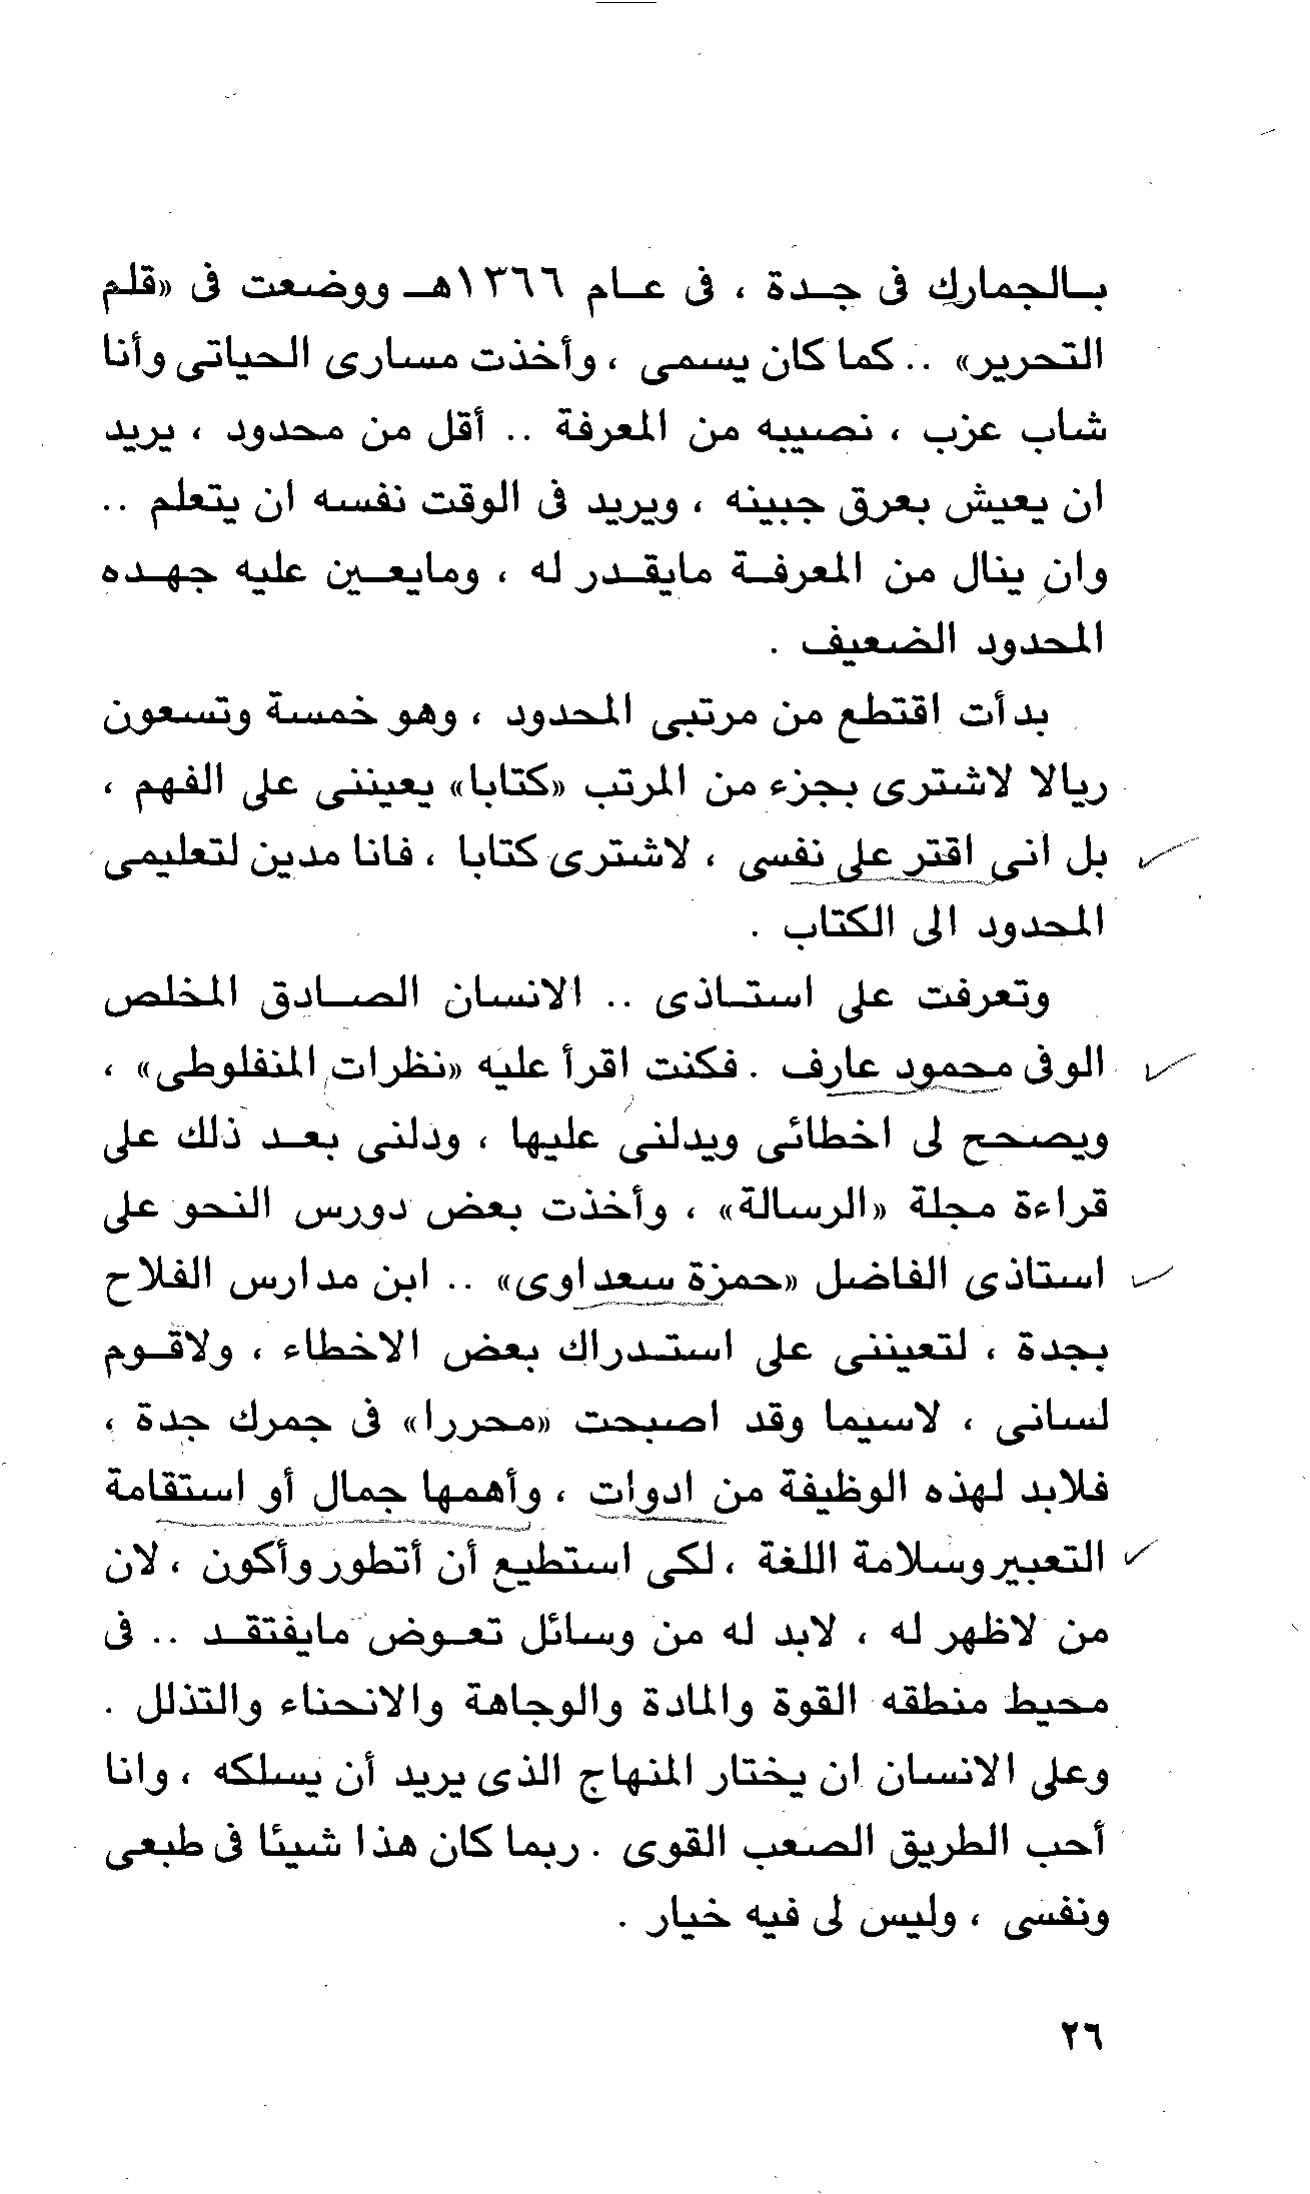 بالجمارك فى جدة ، فى عام ١٣٦٦هـ ووضعت فى «قلم
التحرير» .. كما كان يسمى ، وأخذت مسارى الحياتى وأنا
شاب عزب ، نصيبه من المعرفة .. أقل من محدود ، يريد
ان يعيش بعرق جبينه ، ويريد فى الوقت نفسه ان يتعلم ..
وان ينال من المعرفة مايقدر له ، ومايعين عليه جهده
المحدود الضعيف .
بدأت اقتطع من مرتبى المحدود ، وهو خمسة وتسعون
ريالا لاشترى بجزء من المرتب «كتابا» يعيننى على الفهم ،
بل انى اقتر على نفسى ، لاشترى كتابا ، فانا مدين لتعليمى
المحدود الى الكتاب .
وتعرفت على استاذى .. الانسان الصادق المخلص
الوفى محمود عارف . فكنت اقرأ عليه «نظرات المنفلوطى» ،
ويصحح لى اخطائى ويدلنى عليها ، ودلنى بعد ذلك على
قراءة مجلة «الرسالة» ، وأخذت بعض دورس النحو على
استاذى الفاضل «حمزة سعداوى» .. ابن مدارس الفلاح
بجدة ، لتعيننى على استدراك بعض الاخطاء ، ولاقوم
لسانى ، لاسيما وقد اصبحت «محررا» فى جمرك جدة ،
فلابد لهذه الوظيفة من ادوات ، وأهمها جمال أو استقامة
التعبير وسلامة اللغة ، لكى استطيع أن أتطور وأكون ، لان
من لاظهر له ، لابد له من وسائل تعوض مايفتقد .. فى
محيط منطقه القوة والمادة والوجاهة والانحناء والتذلل .
وعلى الانسان ان يختار المنهاج الذى يريد أن يسلكه ، وانا
أحب الطريق الصعب القوى . ربما كان هذا شيئا فى طبعى
ونفسى ، وليس لى فيه خيار .
٢٦